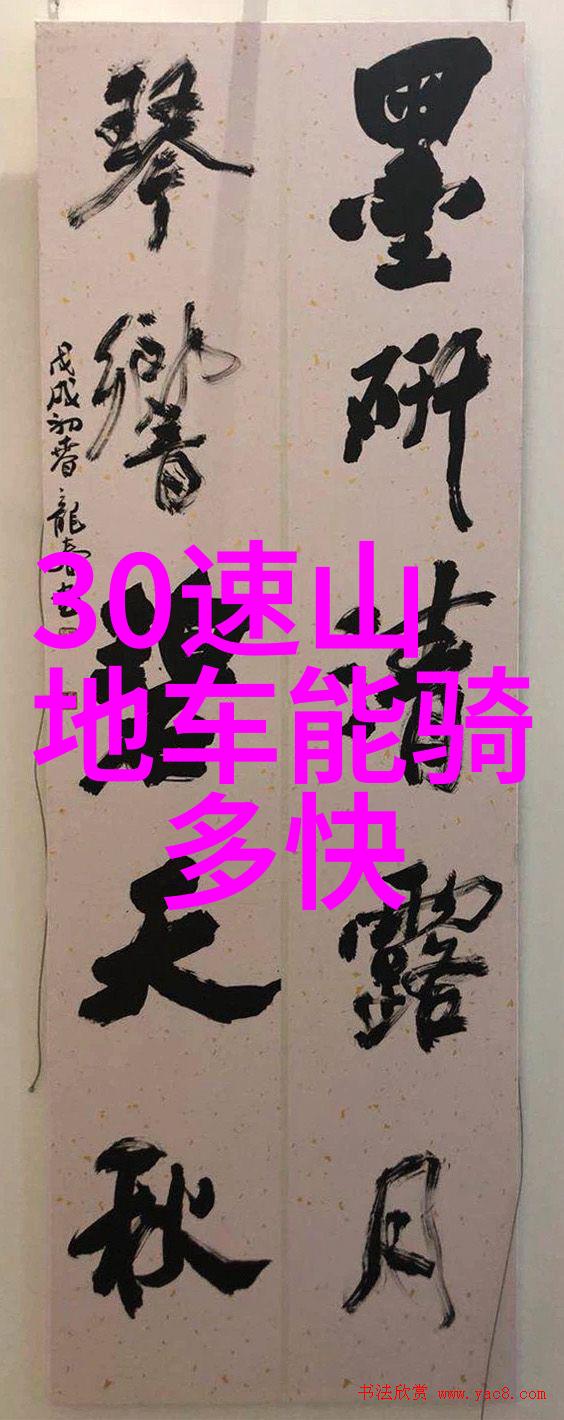 墨研清露月
琴響碧天秋
戊戌初春 龍
30速山
地车能骑
多快
书法欣赏 www.yac8.com